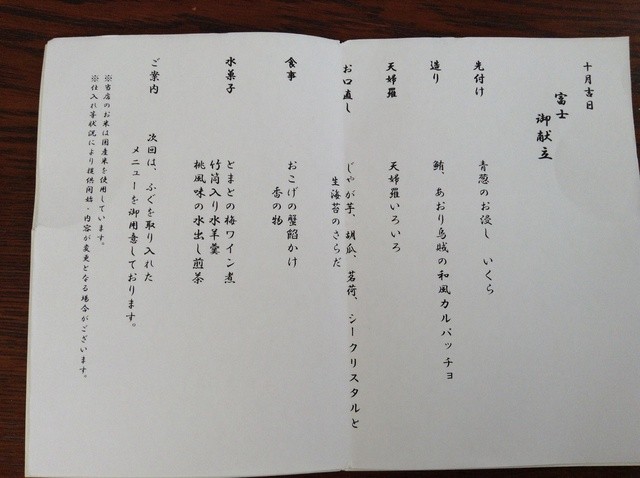 十月吉日
富士
御献立
先付け
青葱のお浸し いくら
造り
鮪、あおり烏賊の和風カルパッチョ
天婦羅
天婦羅いろいろ
お口直し
じゃが芋、胡瓜、茗荷、シークリスタルと
生海苔のさらだ
食事
おこげの蟹餡かけ
香の物
水菓子
とまとの梅ワイン煮
竹筒入り水羊羹
桃風味の水出し煎茶
ご案内
次回は、ふぐを取り入れた
メニューを御用意しております。
※当店のお米は国産米を使用しています。
※仕入れ等状況により提供開始・内容が変更となる場合がございます。